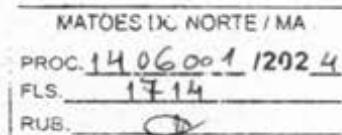 MATOES DO NORTE / MA
PROC. 1406001 /2024
FLS. 1714
RUB.